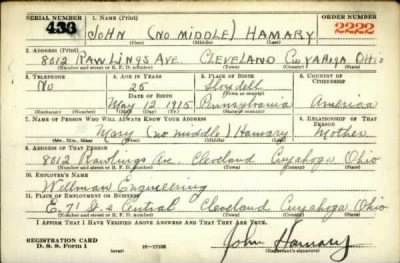 SERIAL NUMBER 1. NAME (Print) ORDER NUMBER
430 JOHN (NO MIDDLE) HAMARY 2222
(First) (Middle) (Last)
2. ADDRESS (Print)
8012 RAWLINGS AVE. CLEVELAND CUYAHOGA OHIO
(Number and street or R. F. D. number) (Town) (County) (State)
3. TELEPHONE 4. AGE IN YEARS 5. PLACE OF BIRTH 6. COUNTRY OF CITIZENSHIP
No 25 Lloydell
DATE OF BIRTH (Town or county)
May 12 1915 Pennsylvania America
(Mo.) (Day) (Yr.) (State or country)
7. NAME OF PERSON WHO WILL ALWAYS KNOW YOUR ADDRESS 8. RELATIONSHIP OF THAT PERSON
Mary (no middle) Hamary Mother
(Mr., Mrs., Miss) (First) (Middle) (Last)
9. ADDRESS OF THAT PERSON
8012 Rawlings Ave. Cleveland Cuyahoga Ohio
(Number and street or R. F. D. number) (Town) (County) (State)
10. EMPLOYER'S NAME
Wellman Engineering
11. PLACE OF EMPLOYMENT OR BUSINESS
E. 71 St. & Central Cleveland Cuyahoga Ohio
(Number and street or R. F. D. number) (Town) (County) (State)
I AFFIRM THAT I HAVE VERIFIED ABOVE ANSWERS AND THAT THEY ARE TRUE.
REGISTRATION CARD John Hamary
D. S. S. Form 1 (Registrant's signature)